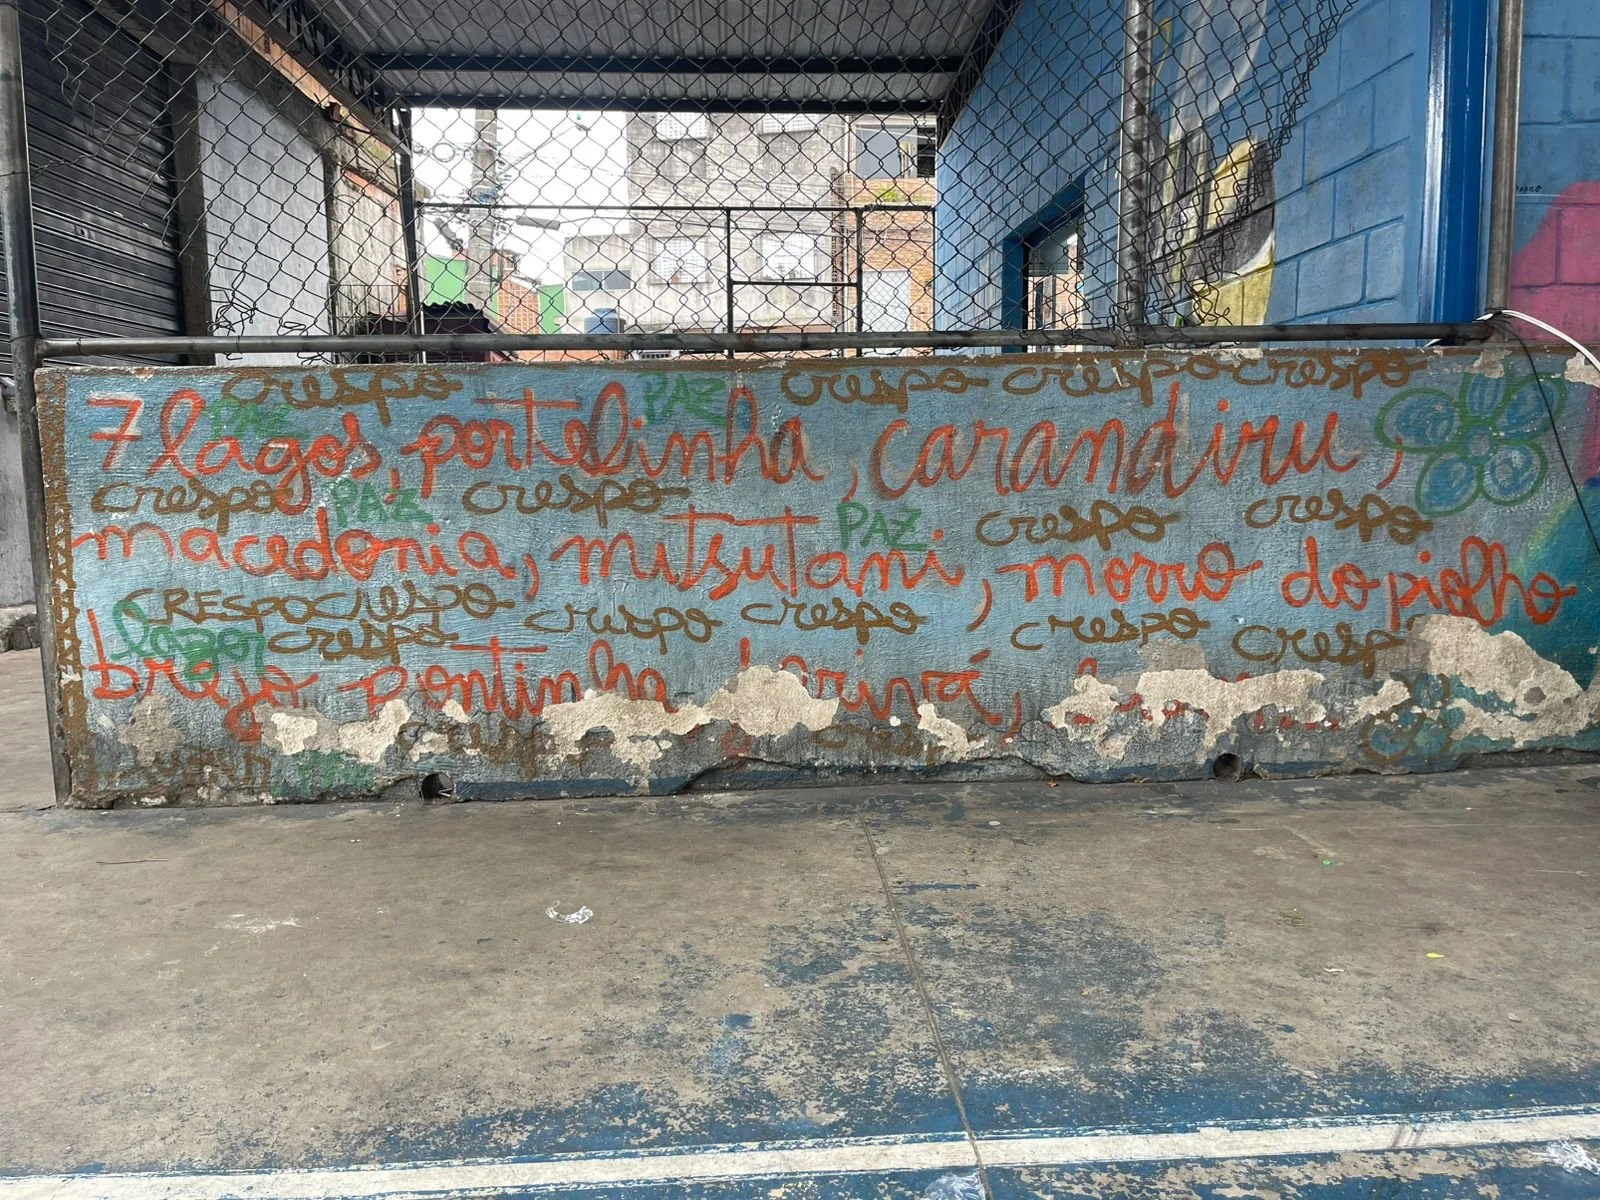 crespo crespo crespo crespo
PAZ PAZ
7 lagos, portelinha, carandiru,
crespo PAZ crespo PAZ crespo crespo
macedonia, mitsutani, morro do piolho
CRESPO crespo crespo crespo crespo
lazer crespo
brejo pontinha
crespo